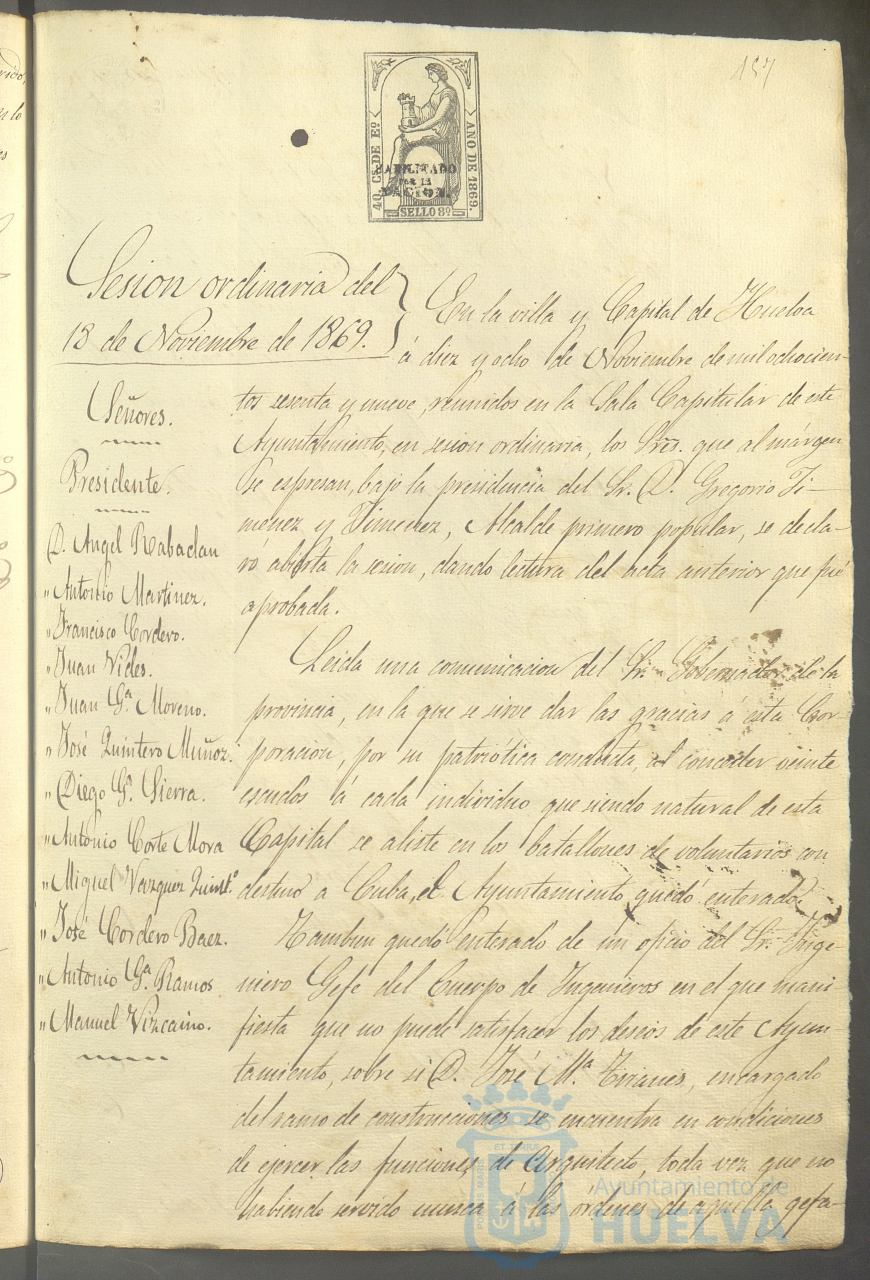 157
40 Cs. DE Eo.
AÑO DE 1869.
HABILITADO
POR LA
NACION.
SELLO 8º
Sesion ordinaria del
18 de Noviembre de 1869.
Señores.
Presidente.
D. Angel Rabadan
" Antonio Martinez.
" Francisco Cordero.
" Juan Vides.
" Juan Gª Moreno.
" José Quintero Muñoz.
" Diego Gª Sierra.
" Antonio Corte Mora
" Miguel Vazquez Quintº
" José Cordero Baez.
" Antonio Gª Ramos
" Manuel Vizcaino.
En la villa y Capital de Huelva
á diez y ocho de Noviembre de mil ochocien-
tos sesenta y nueve, reunidos en la Sala Capitular de este
Ayuntamiento, en sesion ordinaria, los Sres. que al márgen
se espresan, bajo la presidencia del Sr. D. Gregorio Ji-
menez y Jimenez, Alcalde primero popular, se decla-
ró abierta la sesion, dando lectura del acta anterior que fué
aprobada.
Leida una comunicacion del Sr. Gobernador de la
provincia, en la que se sirve dar las gracias á esta Cor-
poracion, por su patriótica conducta, al conceder veinte
escudos á cada individuo que siendo natural de esta
Capital se aliste en los batallones de voluntarios con
destino a Cuba, el Ayuntamiento quedó enterado.
Tambien quedó enterado de un oficio del Sr. Inge-
niero Gefe del Cuerpo de Ingenieros en el que mani
fiesta que no puede satisfacer los deseos de este Ayun-
tamiento, sobre si D. José Mª encargado
del ramo de construcciones se encuentra en condiciones
de ejercer las funciones de Arquitecto, toda vez que no
habiendo servido nunca á las ordenes de aquella gefa-
Ayuntamiento de
HUELVA